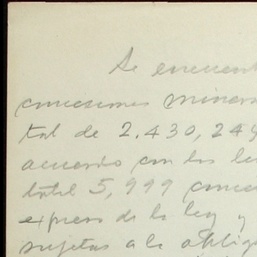 Se encuent
concesiones minera
tal de 2.430,249
acuerdo con las le
total 5,999 conce
expreso de la ley y
sujetas a la oblig